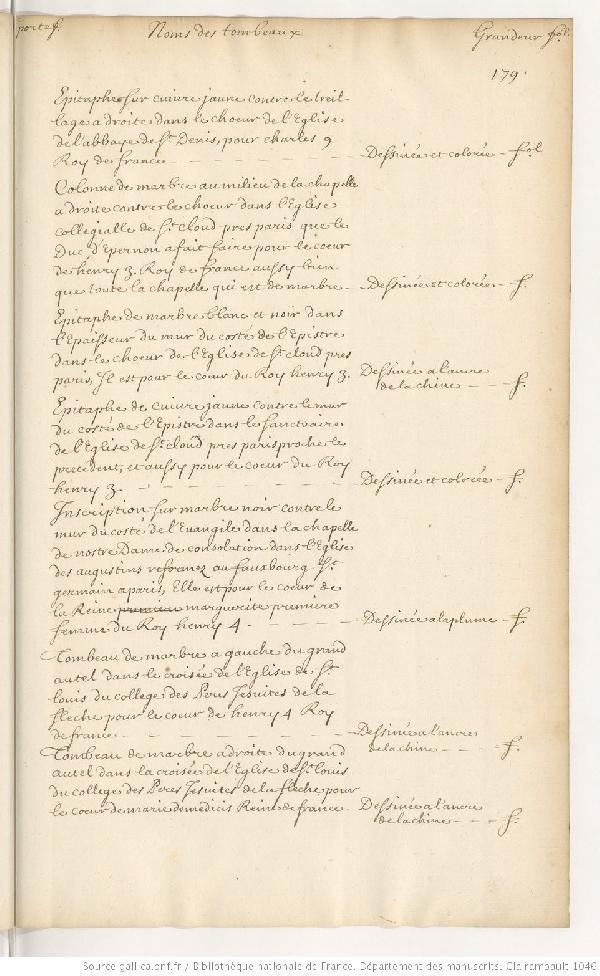 portef. Noms des tombeaux Grandeur fol.
179.
Epitaphe sur cuivre jaune contre le treil-
lage a droite dans le choeur de l'Eglise
de l'abbaye de St. Denis, pour charles 9
Roy de france - Dessinée et colorée - fol
Colonne de marbre au milieu de la chapelle
a droite contre le choeur dans l'Eglise
collegialle de St. cloud pres paris que le
Duc d'Epernon a fait faire pour le coeur
de henry 3. Roy de france aussy bien
que toute la chapelle qui est de marbre - Dessinée et colorée - f.
Epitaphe de marbre blanc et noir dans
l'Epaisseur du mur du costé de l'Epistre
dans le choeur de l'Eglise de St. cloud pres
paris, Il est pour le coeur du Roy henry 3. Dessinée a l'ancre
de la chine - - f.
Epitaphe de cuivre jaune contre le mur
du costé de l'Epistre dans le sanctuaire
de l'Eglise de St. cloud pres paris proche le
precedent, et aussy pour le coeur du Roy
henry 3. - Dessinée et colorée - f.
Inscription sur marbre noir contre le
mur du costé de l'Evangile dans la chapelle
de nostre Dame de consolation dans l'Eglise
des augustins reformez au fauxbourg St.
germain a paris, Elle est pour le coeur de
la Reine marguerite premiere
femme du Roy henry 4 - Dessinée a la plume - f.
Tombeau de marbre a gauche du grand
autel dans la croisée de l'Eglise de St.
louis du college des Peres Jesuites de la
fleche pour le coeur de henry 4 Roy
de france - Dessinée a l'ancre
de la chine - - f.
Tombeau de marbre a droite du grand
autel dans la croisée de l'Eglise de St. louis
du college des Peres Jesuites de la fleche pour
le coeur de marie de medicis Reine de france - Dessinée a l'ancre
de la chine - - f.
Source gallica.bnf.fr / Bibliothèque nationale de France. Département des manuscrits. Clairambault 1046